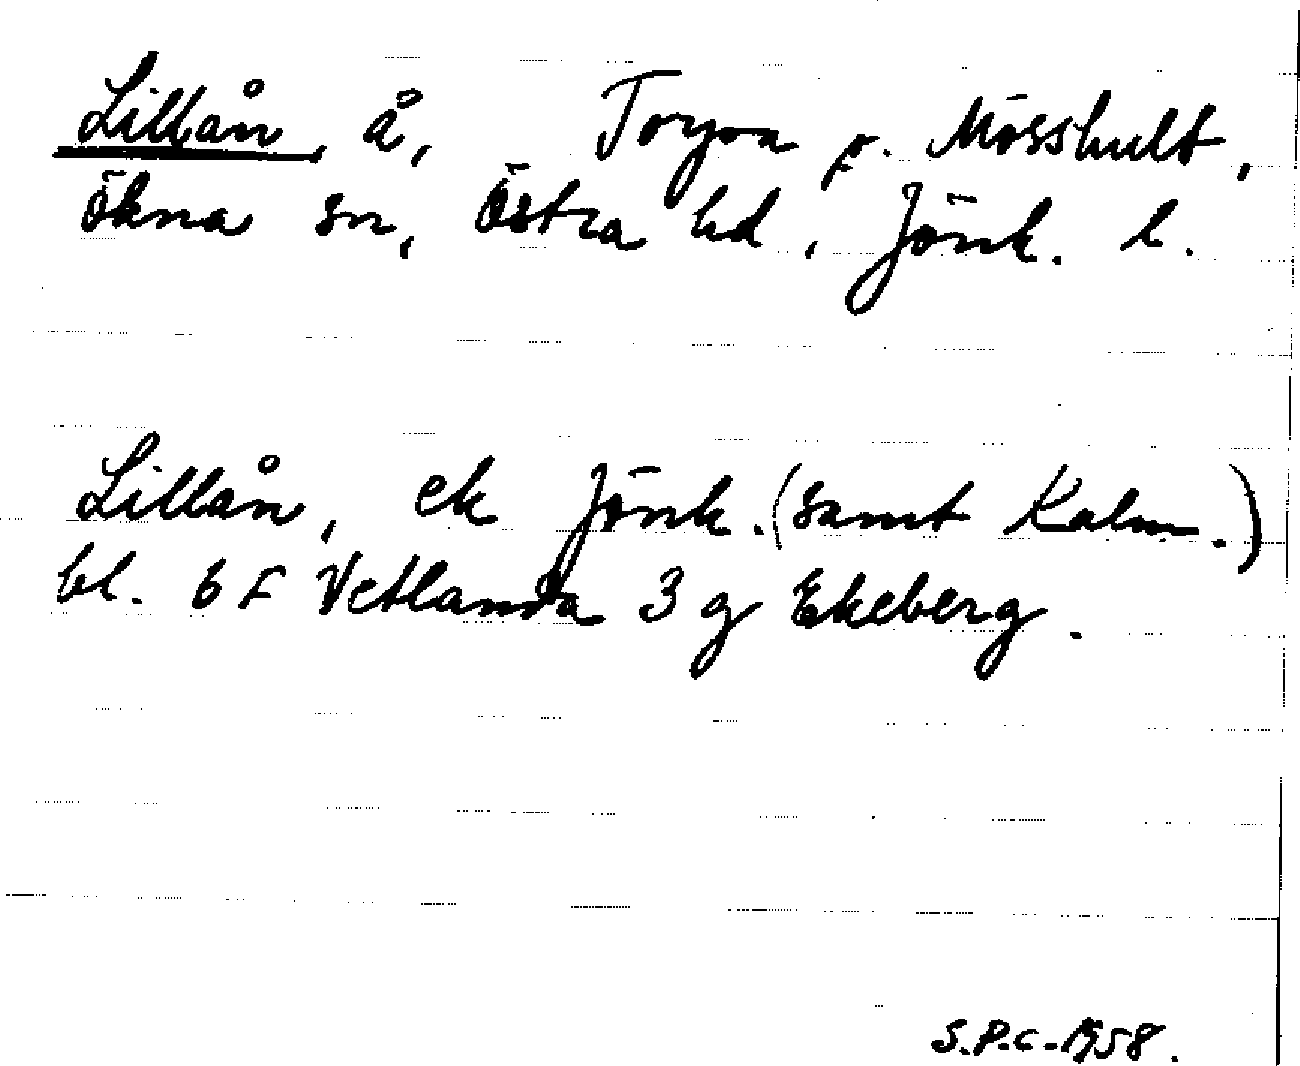 Lillån, å, Torpa o. Mösshult,
Ökna sn, Östra hd, Jönk. l.
Lillån, ek Jönk. (samt Kalm.)
bl. 6 F Vetlanda 3 g Ekeberg.
S.P.C-1958.